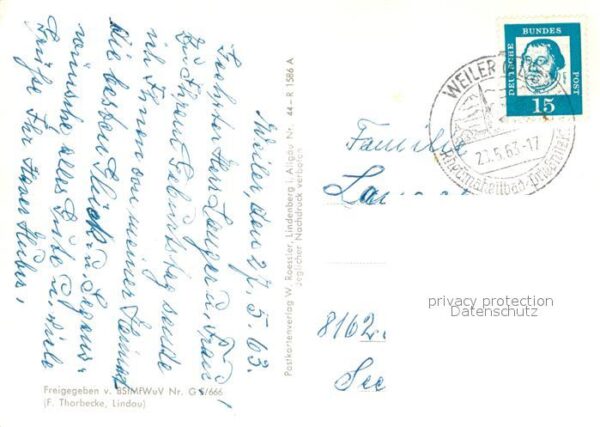 Weiler, den 27. 5. 63.
Sehr geehrter Herr Langer u. Frau!
Zu Ihrem Geburtstag sende
ich Ihnen von meiner Heimat
die besten Glück- u. Segens-
wünsche alles Gute u. viele
Grüße Ihr Xaver Huber,
Postkartenverlag W. Roessler, Lindenberg i. Allgäu Nr. 44-R 1586 A
Jeglicher Nachdruck verboten
Freigegeben v. BStMfWuV Nr. G 5/666
(F. Thorbecke, Lindau)
DEUTSCHE
BUNDES
POST
15
WEILER
5.63-17
Familie
8162
See
privacy protection
Datenschutz